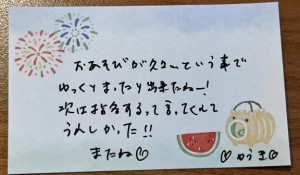 おあそびが久々という事で
ゆっくりまったり出来たねー!
次は指名するって言ってくれて
うれしかった!!
またね♡
♡ゆうき♡